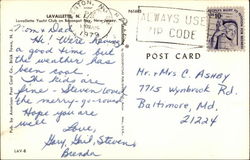 LAVALLETTE, N. J.
Lavallette Yacht Club on Barnegat Bay, New Jersey
1979
ALWAYS USE
ZIP CODE
Mom & Dad
Hi! We're having
a good time but
the weather has
been cool.
The kids are
fine - Steven loved
the merry-go-round.
Hope you are
well.
Love,
Gary, Gail, Steven &
Brenda
POST CARD
Mr. & Mrs C. ASHBY
7715 Wynbrook Rd.
Baltimore, Md.
21224
LAV-8